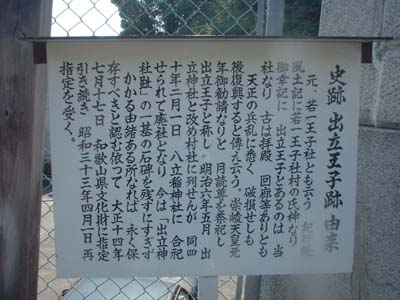 史跡 出立王子跡 由来
元、若一王子社とも云う
風土記に若一王子社村の氏神なり
御幸記に 出立王子とあるのは 当
社なり 古は拝殿 回廊等ありとも
天正の兵乱に悉く 破損せしも
後復興すると伝え云う。崇峻天皇元
年御勧請なりと 月読尊を祭祀し
出立王子と称し 明治六年五月 出
立神社と改め村社に列せんが 同四
十年二月一日 八立稲神社に 合祀
せられて廃社となり 今は「出立神
社跡」の一基の石碑を残すにすぎず
かかる由緒ある所なれば 永く保
存すべきと認む依つて 大正十四年
七月十七日 和歌山県文化財に指定
引き続き 昭和三十三年四月一日再
指定を受く。